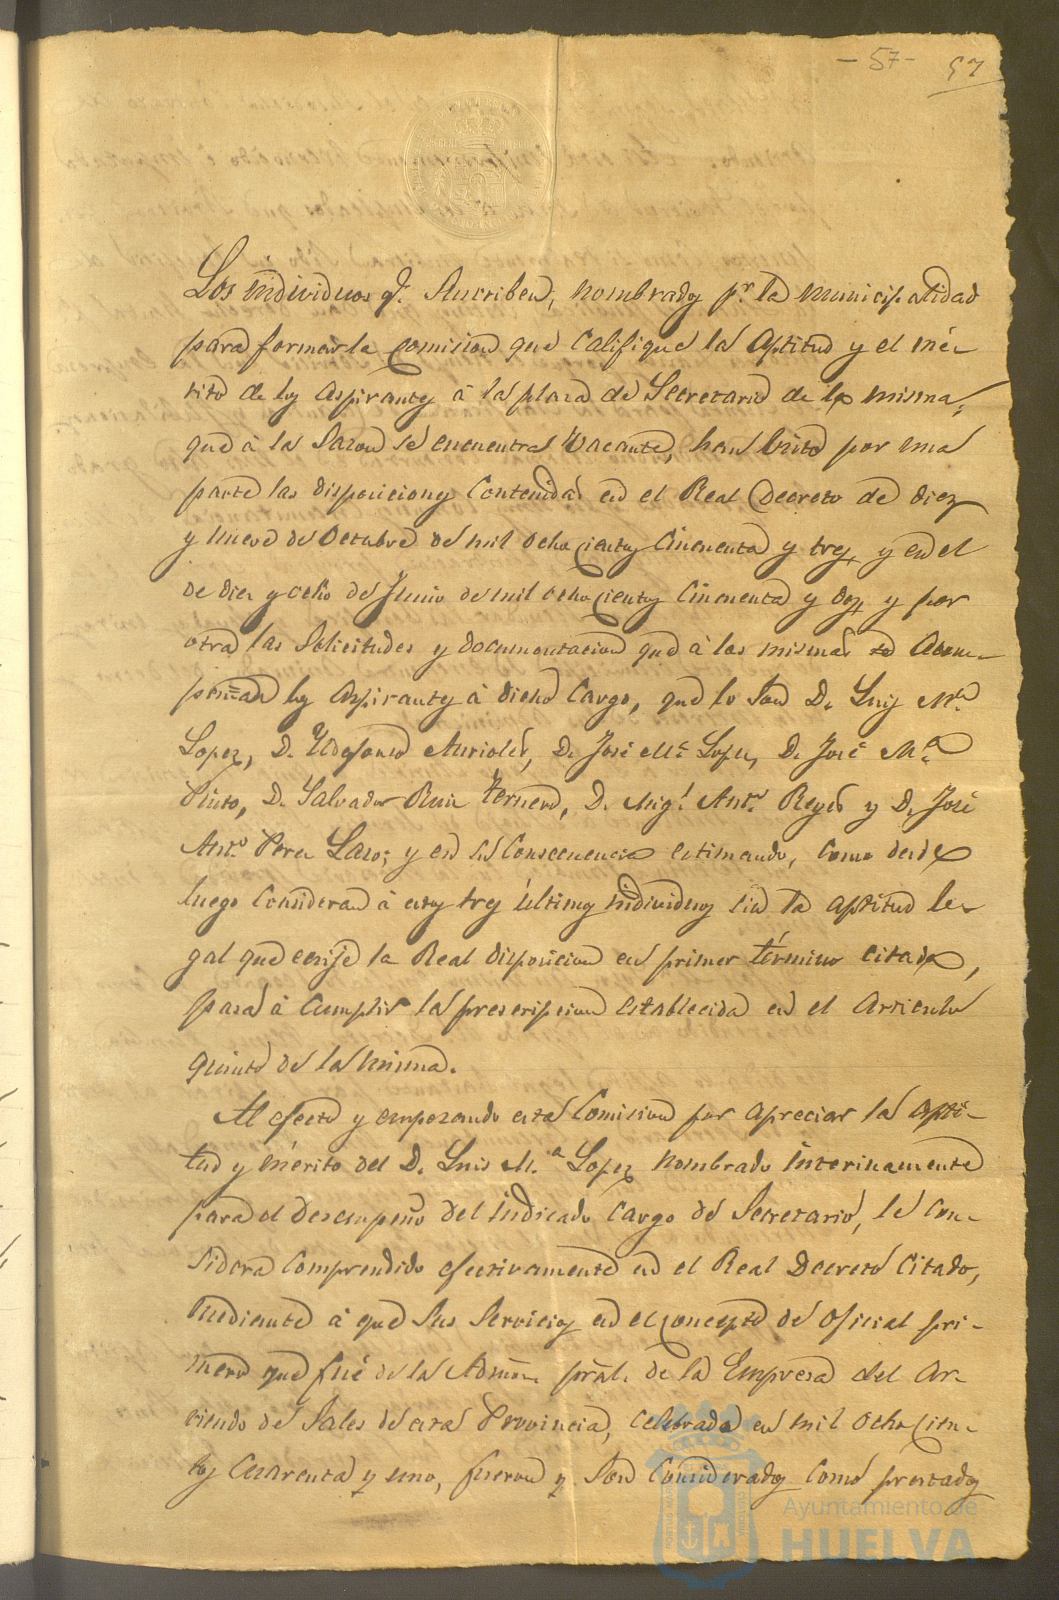 - 57 -
57
Los individuos q.e Suscriben, nombrados p.r la municipalidad
para formar la Comision que Califique la Aptitud y el mé-
rito de los Aspirantes á la plaza de Secretario de la misma,
que á la Sazon se encuentra Vacante, han visto por una
parte las disposiciones Contenidas en el Real Decreto de diez
y nueve de Octubre de mil ochocientos Cincuenta y tres, y en el
de diez y ocho de Junio de mil ochocientos Cincuenta y dos, y por
otra las Solicitudes y documentacion que á las mismas se Acom-
pañan los Aspirantes á dicho Cargo, que lo Son D. Luis M.a
Lopez, D. Yldefonso Aurioles, D. José M.a Lopez, D. José M.a
Pinto, D. Salvador Ruiz Ternero, D. Mig.l Ant.o Reyes y D. José
Ant.o Perez Lazo; y en su Consecuencia estimando, como desde
luego Consideran á estos tres últimos individuos sin la aptitud le-
gal que exije la Real disposicion en primer término citada,
pasa á Cumplir la prescripcion establecida en el Articulo
quinto de la misma.
Al efecto y empezando esta Comision por apreciar la apti-
tud y mérito del D. Luis M.a Lopez nombrado interinamente
para el desempeño del indicado Cargo de Secretario, le Con-
sidera Comprendido efectivamente en el Real Decreto Citado,
mediante á que Sus Servicios en el concepto de oficial pri-
mero que fué de la Admon. pral. de la Empresa del Ar-
riendo de Sales de esta Provincia, Celebrada en mil ochocien-
tos Cuarenta y uno, fueron y Son Considerados Como prestados
Ayuntamiento de
HUELVA